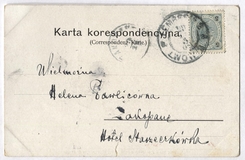 Karta korespondencyjna.
(Correspondenz-Karte.)
Wielmożna
Helena Pawlicówna
Zakopane
Hotel Staszeczkówka